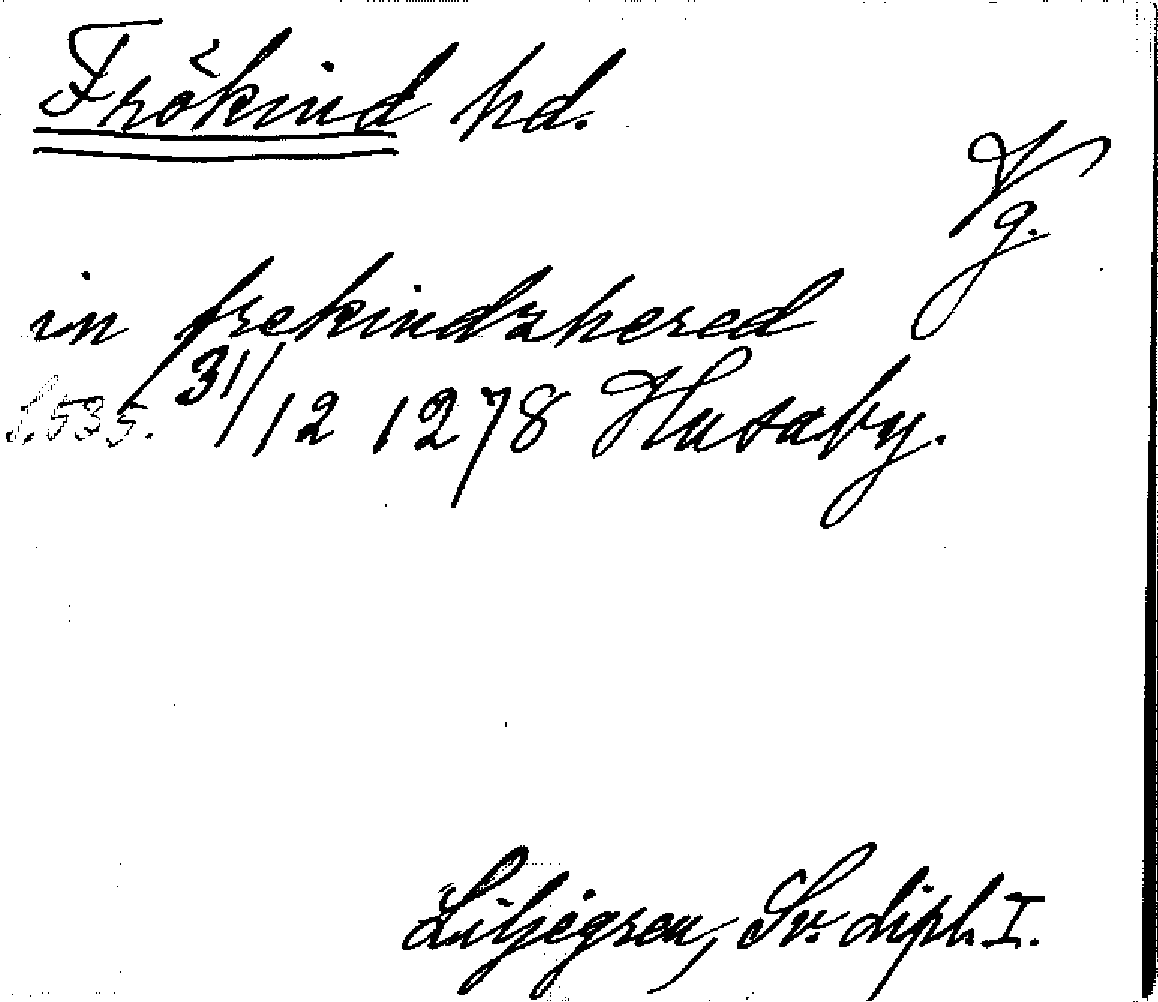 Frökind hd.
Vg.
in frekindzhered
S. 535. 31/12 1278 Husaby.
Liljegren, Sv. dipl. I.